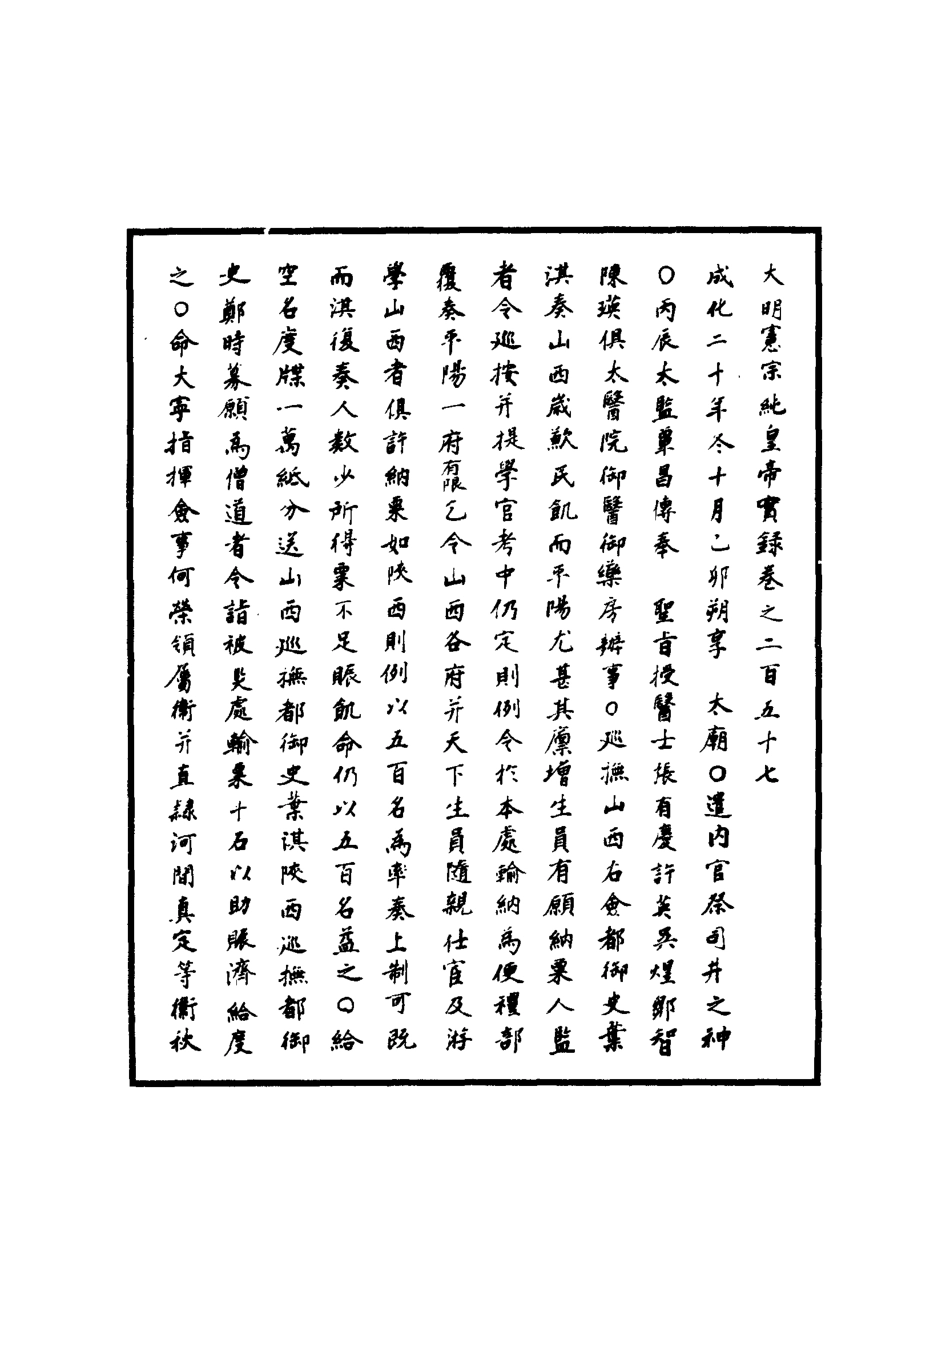 大明憲宗純皇帝實錄卷之二百五十七
成化二十年冬十月己卯朔享　太廟○遣內官祭司井之神
○丙辰太監覃昌傳奉　聖旨授醫士張有慶許英吳煋鄒智
陳瑛俱太醫院御醫御藥房辦事○巡撫山西右僉都御史葉
淇奏山西歲歉民飢而平陽尤甚其廩增生員有願納粟人監
者令巡按并提學官考中仍定則例令於本處輸納為便禮部
覆奏平陽一府有限乞令山西各府并天下生員隨親仕宦及游
學山西者俱許納粟如陝西則例以五百名為率奏上制可既
而淇復奏人數少所得粟不足賑飢命仍以五百名益之○給
空名度牒一萬紙分送山西巡撫都御史葉淇陝西巡撫都御
史鄭時募願為僧道者令詣被災處輸粟十石以助賑濟給度
之○命大寧指揮僉事何榮領屬衛并直隸河間真定等衛秋